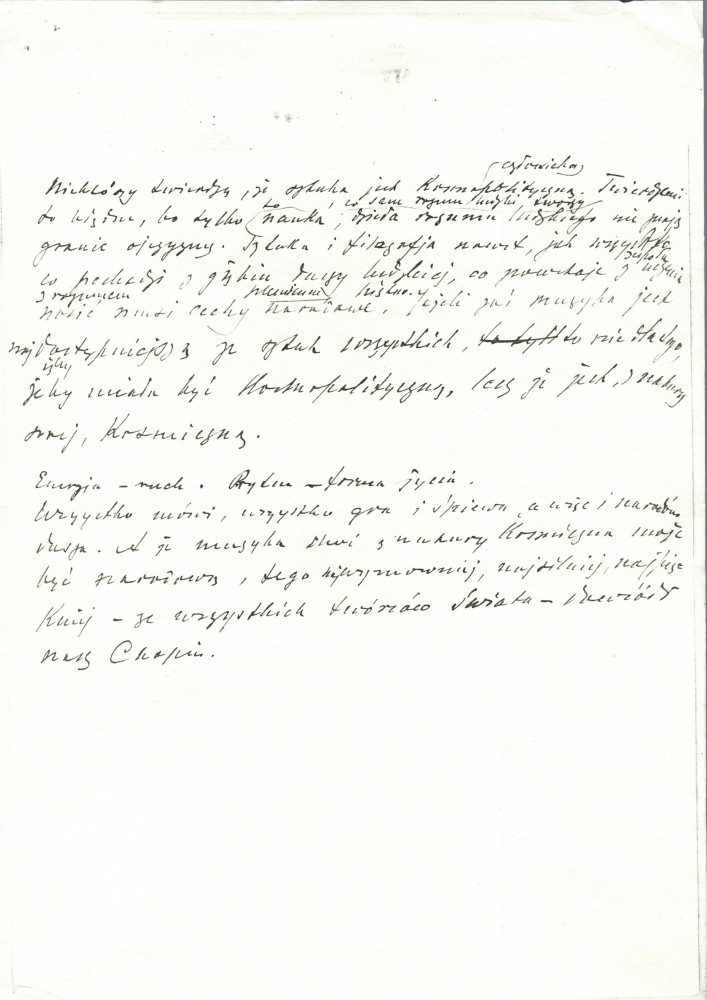 (człowieka)
Niektórzy twierdzą, że sztuka jest Kosmopolityczną. Twierdzenie
to, co sam rozum ludzki tworzy
to błędne, bo tylko nauka, dzieła rozumu ludzkiego nie znają
granic ojczyzny. Sztuka i filozofja nawet, jak wszystko
co pochodzi z głębin duszy ludzkiej, co powstaje z
z rozumem plemienne
nosić musi cechy narodowe. Jeżeli zaś muzyka jest
najdostępniejszą ze sztuk wszystkich, to tylko to nie dlatego,
iżby
żeby miała być Kosmopolityczną, lecz że jest, z natury
swej, Kosmiczną.
Energja – ruch. Rytm – forma życia.
Wszystko mówi, wszystko gra i śpiewa, a więc i narodów
dusza. A że muzyka choć z natury Kosmiczna może
być narodową, tego najwymowniej, najsilniej, najpięk
kniej – ze wszystkich twórców świata – dowiódł
nasz Chopin.